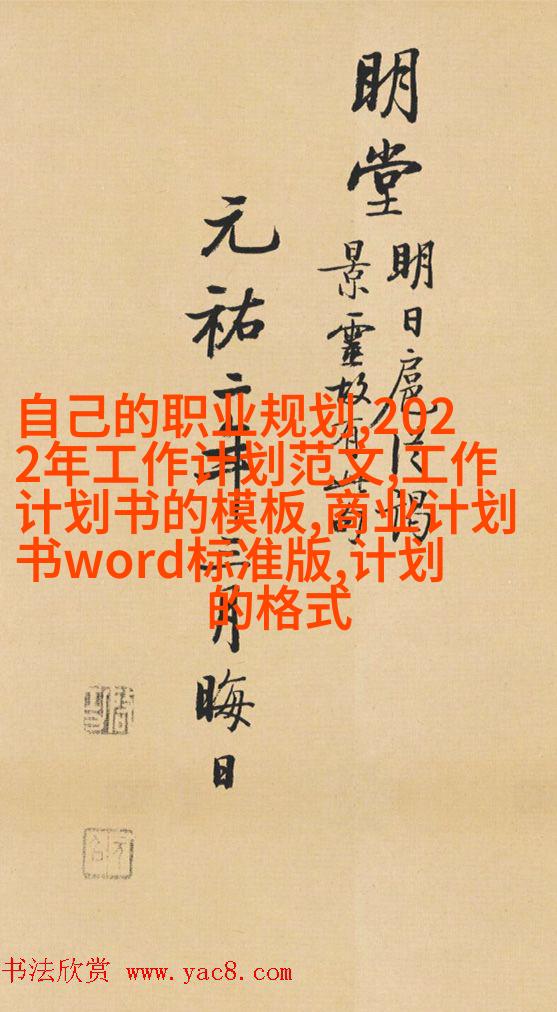 明堂
明日扈从謁
景靈故有此句
元祐二年三月晦日
自己的职业规划,202
2年工作计划范文,工作
计划书的模板,商业计划
书word标准版,计划
的格式
书法欣赏 www.yac8.com